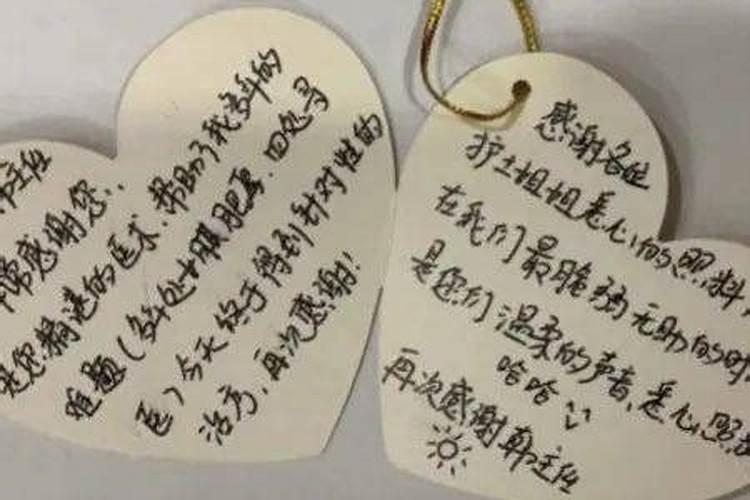 主任
感谢您..
是您精湛的医术.帮助了我多年的
难题(多年处女膜肥厚.四处寻
医)今天终于得到针对性的
治疗,再次感谢!
感谢各位
护士姐姐悉心的照料
在我们最脆弱无助的时
是您们温柔的声音,悉心照
哈哈
再次感谢韩主任